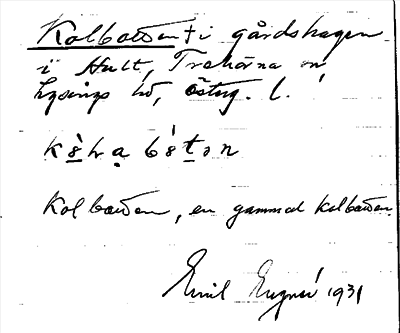 Kolbotten † i gårdshagen
i Hult, Trehörna sn
Lysings hd, Österg. l.
Kolbotten, en gammal kolbotten.
Emil 1931